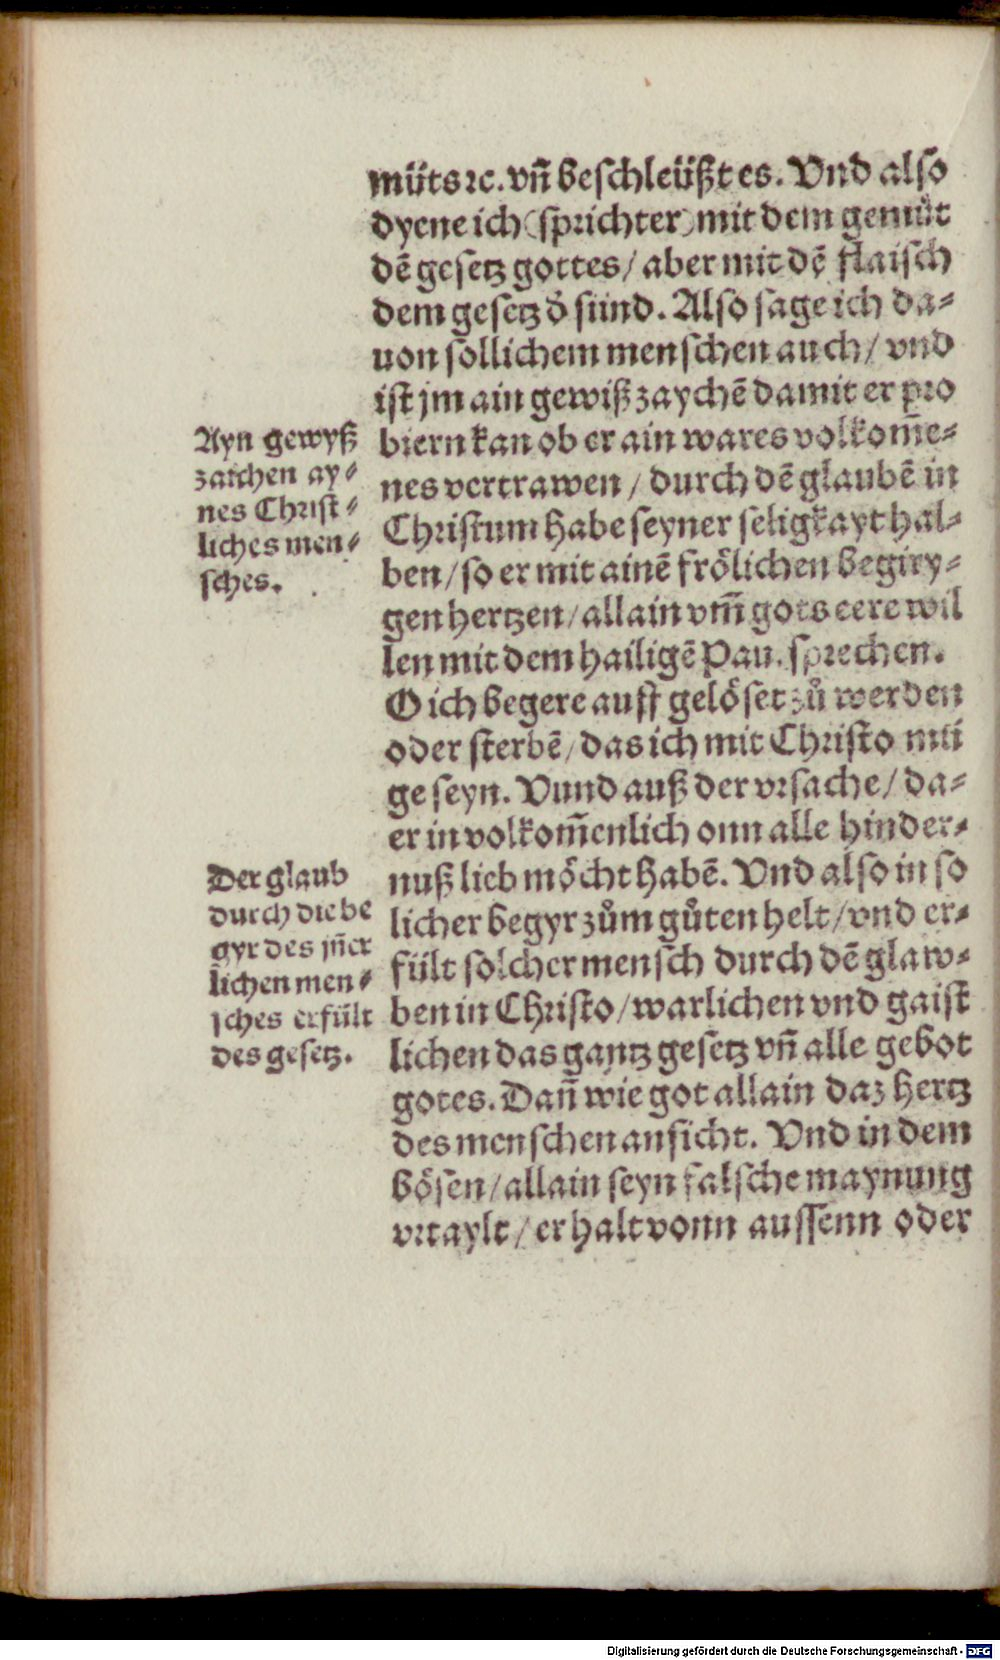 müts ꝛc. vñ beschleüßt es. Vnd also
dyene ich (spricht er) mit dem gemüt
dē gesetz gottes / aber mit dē flaisch
dem gesetz d̓ sünd. Also sage ich da⸗
uon sollichem menschen auch / vnd
ist jm ain gewiß zaychē damit er pro
biern kan ob er ain wares volkom̄e⸗
nes vertrawen / durch dē glaubē in
Christum habe seyner seligkayt hal⸗
ben / so er mit ainē frölichen begiry⸗
gen hertzen / allain vm̄ gots eere wil
len mit dem hailigē Pau. sprechen.
O ich begere auff gelöset zů werden
oder sterbē / das ich mit Christo mü
ge seyn. Vnnd auß der vrsache / da⸗
er in volkom̄enlich onn alle hinder⸗
nuß lieb möcht habē. Vnd also in so
licher begyr zům gůten helt / vnd er⸗
fült solcher mensch durch dē glaw⸗
ben in Christo / warlichen vnd gaist
lichen das gantz gesetz vñ alle gebot
gotes. Dañ wie got allain daz hertz
des menschen ansicht. Vnd in dem
bösen / allain seyn falsche maynung
vrtaylt / er halt vonn aussenn oder
Ayn gewyß
zaichen ay⸗
nes Christ⸗
liches men⸗
sches.
Der glaub
durch die be
gyr des jñer
lichen men⸗
sches erfült
des gesetz.
Digitalisierung gefördert durch die Deutsche Forschungsgemeinschaft - DFG